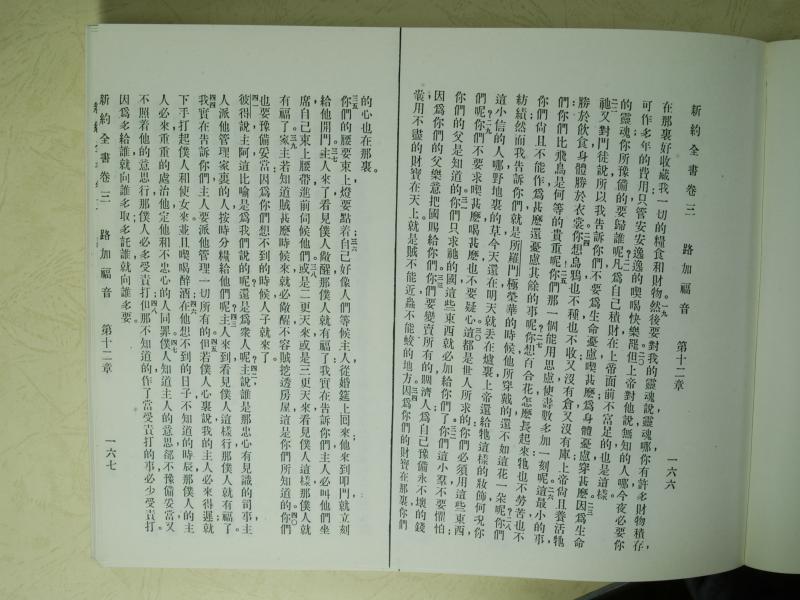 新約全書卷三 路加福音 第十二章 一六六
在那裏好收藏我一切的糧食和財物然後要對我的靈魂說靈魂哪你有許多財物積存
可作多年的費用只管安安逸逸的喫喝快樂罷但上帝對他說無知的人哪今夜必要你
的靈魂你所豫備的要歸誰呢凡爲自己積財在上帝面前不富足的也是這樣
祂又對門徒說所以我告訴你們不要爲生命憂慮喫甚麼爲身體憂慮穿甚麼因爲生命
勝於飲食身體勝於衣裳你想烏鴉也不種也不收又沒有倉又沒有庫上帝尙且養活牠
們你們比飛鳥是何等的貴重呢你們那一個能用思慮使壽數多加一刻呢這最小的事
你們尙且不能作爲甚麼還憂慮其餘的事呢你想百合花怎麼長起來牠也不勞苦也不
紡績然而我告訴你們就是所羅門極榮華的時候他所穿戴的還不如這花一朵呢你們
這小信的人哪野地裏的草今天還在明天就丟在爐裏上帝還給牠這樣的妝飾何況你
們呢你們不要求喫甚麼喝甚麼也不要疑心這都是世人所求的你們必須用這些東西
你們的父是知道的你們只求祂的國這些東西就必加給你們了你們這小羣不要懼怕
因爲你們的父樂意把國賜給你們你們要變賣所有的賙濟人爲自己豫備永不壞的錢
囊用不盡的財寶在天上就是賊不能近蟲不能蛟的地方因爲你們的財寶在那裏你們
的心也在那裏
你們的腰要束上燈要點着自己好像人們等候主人從婚筵上回來他來到叩門就立刻
給他開門主人來了看見僕人儆醒那僕人就有福了我實在告訴你們主人必叫他們坐
席自己束上腰帶進前伺候他們或是二更天來或是三更天來看見僕人這樣那僕人就
有福了家主若知道賊甚麼時候來就必儆醒不容賊挖透房屋這是你們所知道的你們
也要豫備妥當因爲你們想不到的時候人子就來了
彼得說主阿這比喻是爲我們說的呢還是爲衆人呢主說誰是那忠心有見識的司事主
人派他管理家裏的人按時分糧給他們呢主人來到看見僕人這樣行那僕人就有福了
我實在告訴你們主人要派他管理一切所有的但若僕人心裏說我的主人必來得遲就
下手打起僕人和使女來並且喫喝醉酒在他想不到的日子不知道的時辰那僕人的主
人必來重重的處治他定他和不忠心的人同罪僕人知道主人的意思卻不豫備妥當又
不照着他的意思行那僕人必多受責打但那不知道的作了當受責打的事必少受責打
因爲多給誰就向誰多取多託誰就向誰多要
新約全書卷三 路加福音 第十二章 一六七